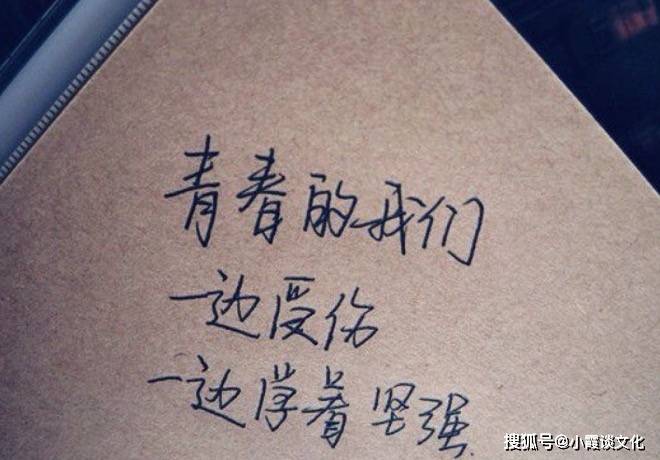 青春的我们
一边受伤
一边学着坚强
搜狐号@小霞谈文化